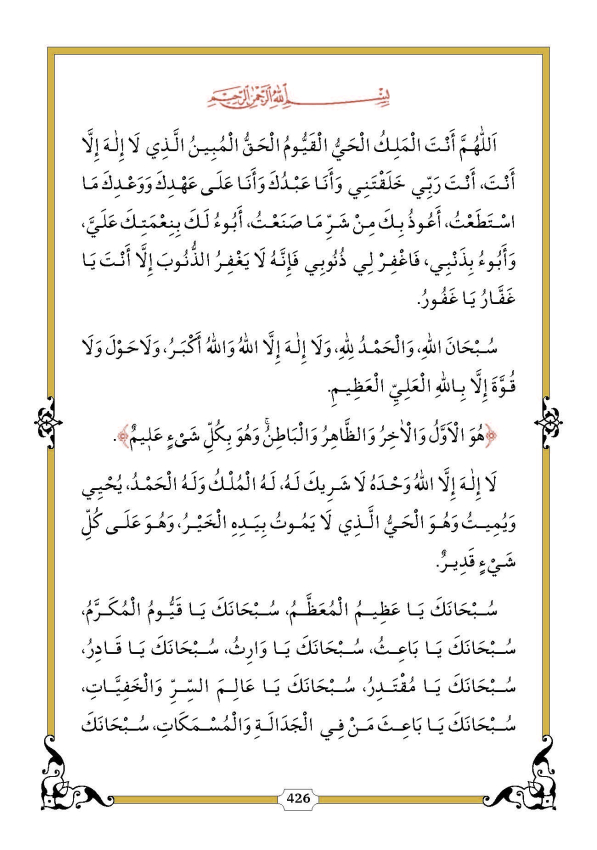 بِسْمِ اللهِ الرَّحْمٰنِ الرَّحِيمِ
اَللّٰهُمَّ أَنْتَ الْمَلِكُ الْحَيُّ الْقَيُّومُ الْحَقُّ الْمُبِينُ الَّذِي لَا إِلٰهَ إِلَّا
أَنْتَ، أَنْتَ رَبِّي خَلَقْتَنِي وَأَنَا عَبْدُكَ وَأَنَا عَلَى عَهْدِكَ وَوَعْدِكَ مَا
اسْتَطَعْتُ، أَعُوذُ بِكَ مِنْ شَرِّ مَا صَنَعْتُ، أَبُوءُ لَكَ بِنِعْمَتِكَ عَلَيَّ،
وَأَبُوءُ بِذَنْبِي، فَاغْفِرْ لِي ذُنُوبِي فَإِنَّهُ لَا يَغْفِرُ الذُّنُوبَ إِلَّا أَنْتَ يَا
غَفَّارُ يَا غَفُورُ.
سُبْحَانَ اللهِ، وَالْحَمْدُ لِلهِ، وَلَا إِلٰهَ إِلَّا اللهُ وَاللهُ أَكْبَرُ، وَلَاحَوْلَ وَلَا
قُوَّةَ إِلَّا بِاللهِ الْعَلِيِّ الْعَظِيمِ.
﴿هُوَ الْاَوَّلُ وَالْاٰخِرُ وَالظَّاهِرُ وَالْبَاطِنُۚ وَهُوَ بِكُلِّ شَیْءٍ عَلٖيمٌ﴾.
لَا إِلٰهَ إِلَّا اللهُ وَحْدَهُ لَا شَرِيكَ لَهُ، لَهُ الْمُلْكُ وَلَهُ الْحَمْدُ، يُحْيِي
وَيُمِيتُ وَهُوَ الْحَيُّ الَّذِي لَا يَمُوتُ بِيَدِهِ الْخَيْرُ، وَهُوَ عَلَى كُلِّ
شَيْءٍ قَدِيرٌ.
سُبْحَانَكَ يَا عَظِيمُ الْمُعَظَّمُ، سُبْحَانَكَ يَا قَيُّومُ الْمُكَرَّمُ،
سُبْحَانَكَ يَا بَاعِثُ، سُبْحَانَكَ يَا وَارِثُ، سُبْحَانَكَ يَا قَادِرُ،
سُبْحَانَكَ يَا مُقْتَدِرُ، سُبْحَانَكَ يَا عَالِمَ السِّرِّ وَالْخَفِيَّاتِ،
سُبْحَانَكَ يَا بَاعِثَ مَنْ فِي الْجَدَالَةِ وَالْمُسْمَكَاتِ، سُبْحَانَكَ
426